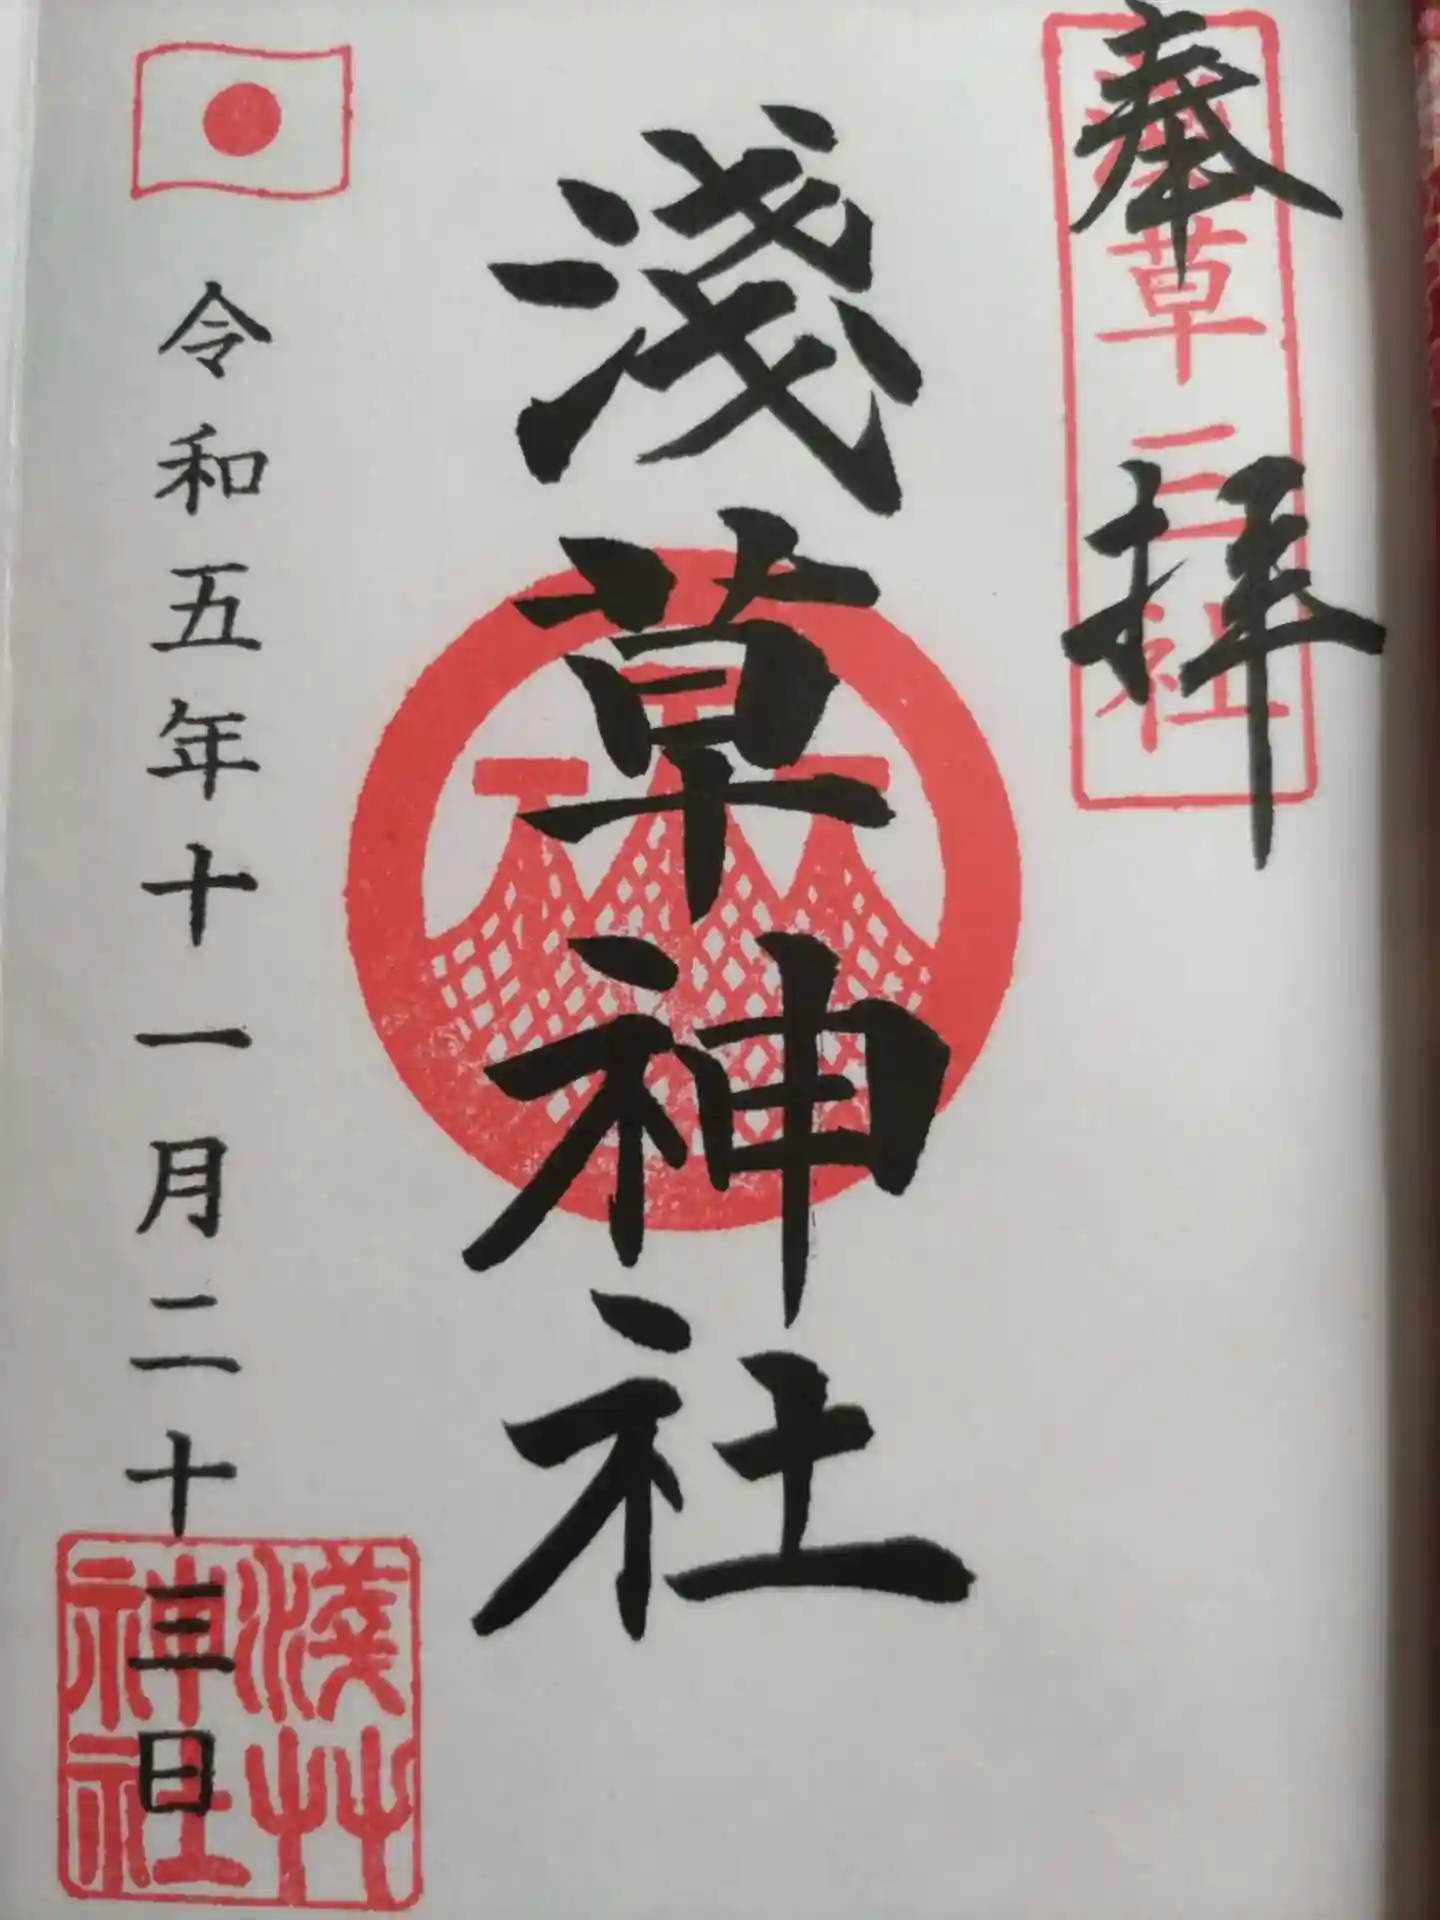 奉拝
淺草三社
淺草神社
令和五年十一月二十三日
淺艸
神社